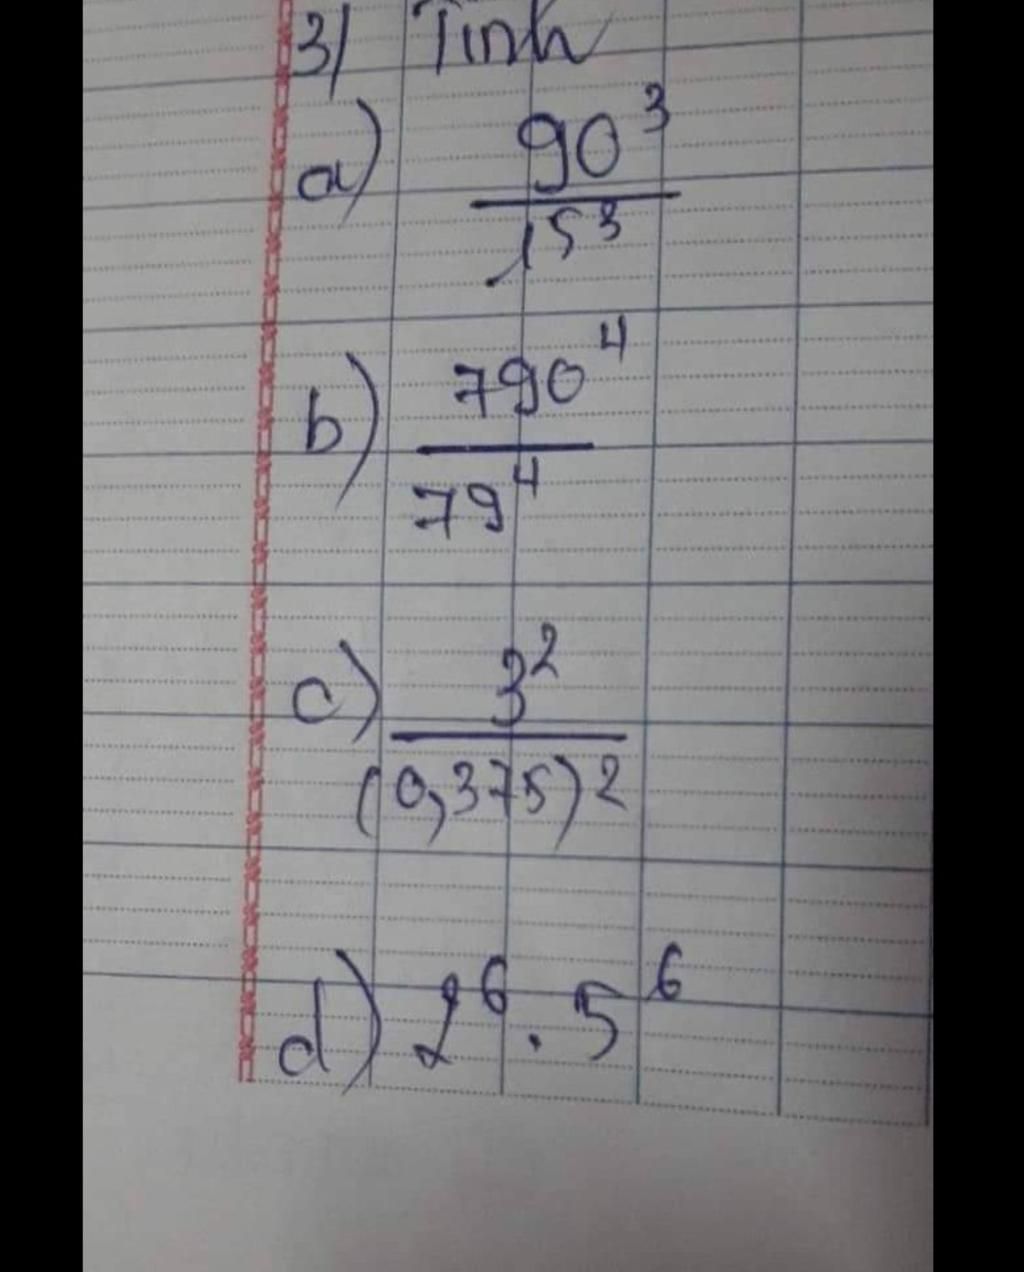 3/ Tính
a) 90³
15³
b) 790⁴
79⁴
c) 3²
(0,375)²
d) 2⁶ . 5⁶